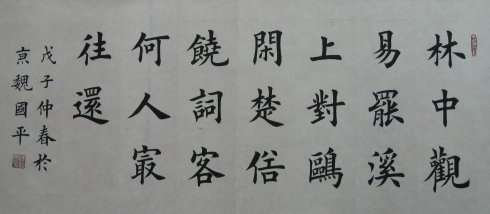 林中觀
易罷溪
上對鷗
閑楚俗
饒詞客
何人㝡
徃還
戊子仲春於
亰魏國平